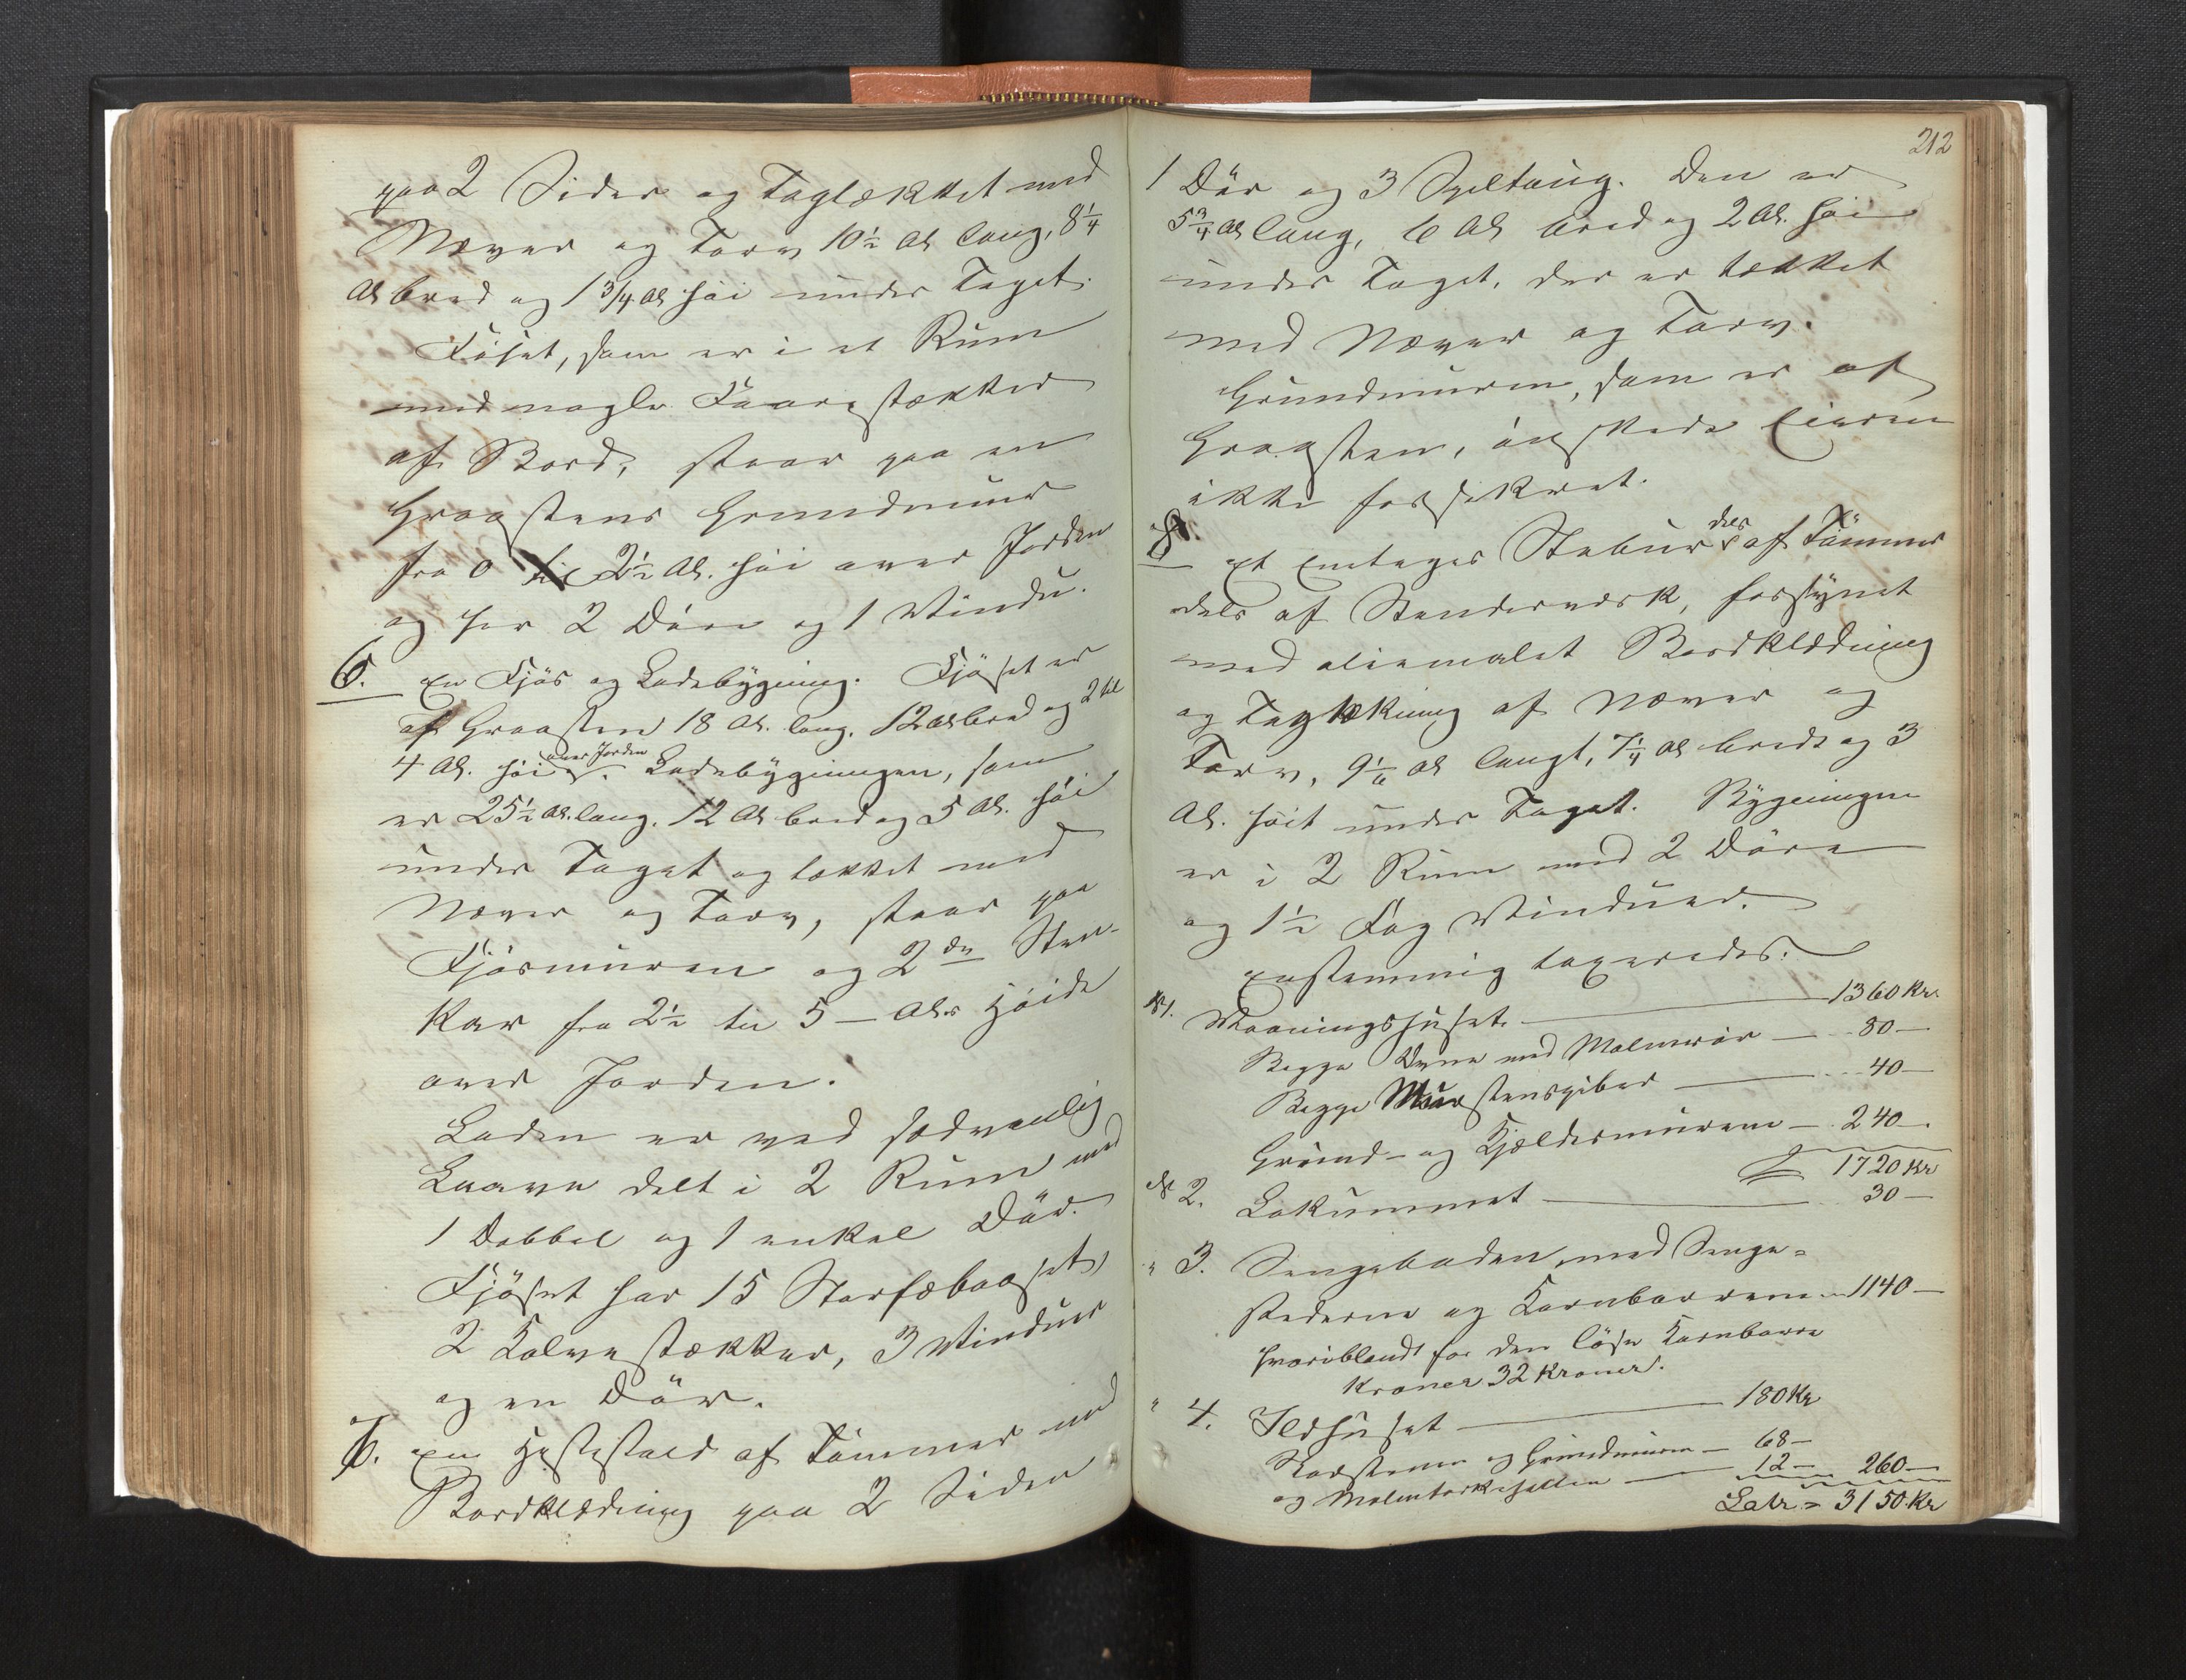 paa 2 Sider og Taglækket med
Næver og Torv 10½ Al lang, 8¼
Al bred og 1 3/4 Al høi under Taget.
Föset, som er i et Rum
med nogle Faarestækker
af Bord, staar paa en
Graastens Grundmuur
fra 0 til 2½ Al. høi over Jorden
og har 2 Döre og 1 Vindu.
6. En Fjös og Ladebygning. Fjöset er
af Graasten 18 Al. lang, 12 Al bred og 2 til
4 Al. høi over Jorden. Ladebygningen, som
er 25½ Al. lang, 12 Al bred og 5 Al. høi
under Taget og tækket med
Næver og Torv, staar paa
Fjösmuren og 2de Sten-
kar fra 2½ til 5 – Als Høide
over Jorden.
Laden er ved sædvanlig
Laave delt i 2 Rum med
1 Dobbel og 1 enkel Dör.
Fjöset har 15 Storfæbaaset,
2 Kalvestækker, 3 Vinduer
og en Dör.
7. En Hestestald af Tömmer med
Bordklædning paa 2 Sider
212
1 Dör og 3 Spiltaug. Den er
5¾ Al lang, 6 Al bred og 2 Al. høi
under Taget, der er tækket
med Næver og Torv.
Grundmuren, som er af
Graasten, önskede Eieren
ikke forsikret.
8. Et Entages Stabur dels af Tömmer
dels af Stenderværk, forsynet
med oliemalet Bordklædning
og Tagtækning af Næver og
Torv, 9¼ Al langt, 7¼ Al bredt og 3
Al. høit under Taget. Bygningen
er i 2 Rum med 2 Döre
og 1½ Fag Vinduer.
Enstemmig taxeredes:
№ 1. Vaaningshuset — 1360 Kr.
Begge Ovne med Malmrör — 80 —
Begge Murstenspiber — 40 —
Grund- og Kjældermurene — 240 —
1720 Kr
№ 2. Lokummet — 30 —
" 3. Sengeboden med Senge-
stederne og Kornbørrene — 1140 —
hvoriblandt for den löse Kornbörre
Kroner 32 Kroner.
" 4. Ildhuset — 180 Kr
Skorstenen og Grundmuren — 68 —
og Malmtørkehellen — 12 — 260 —
Latr. = 3150 Kr